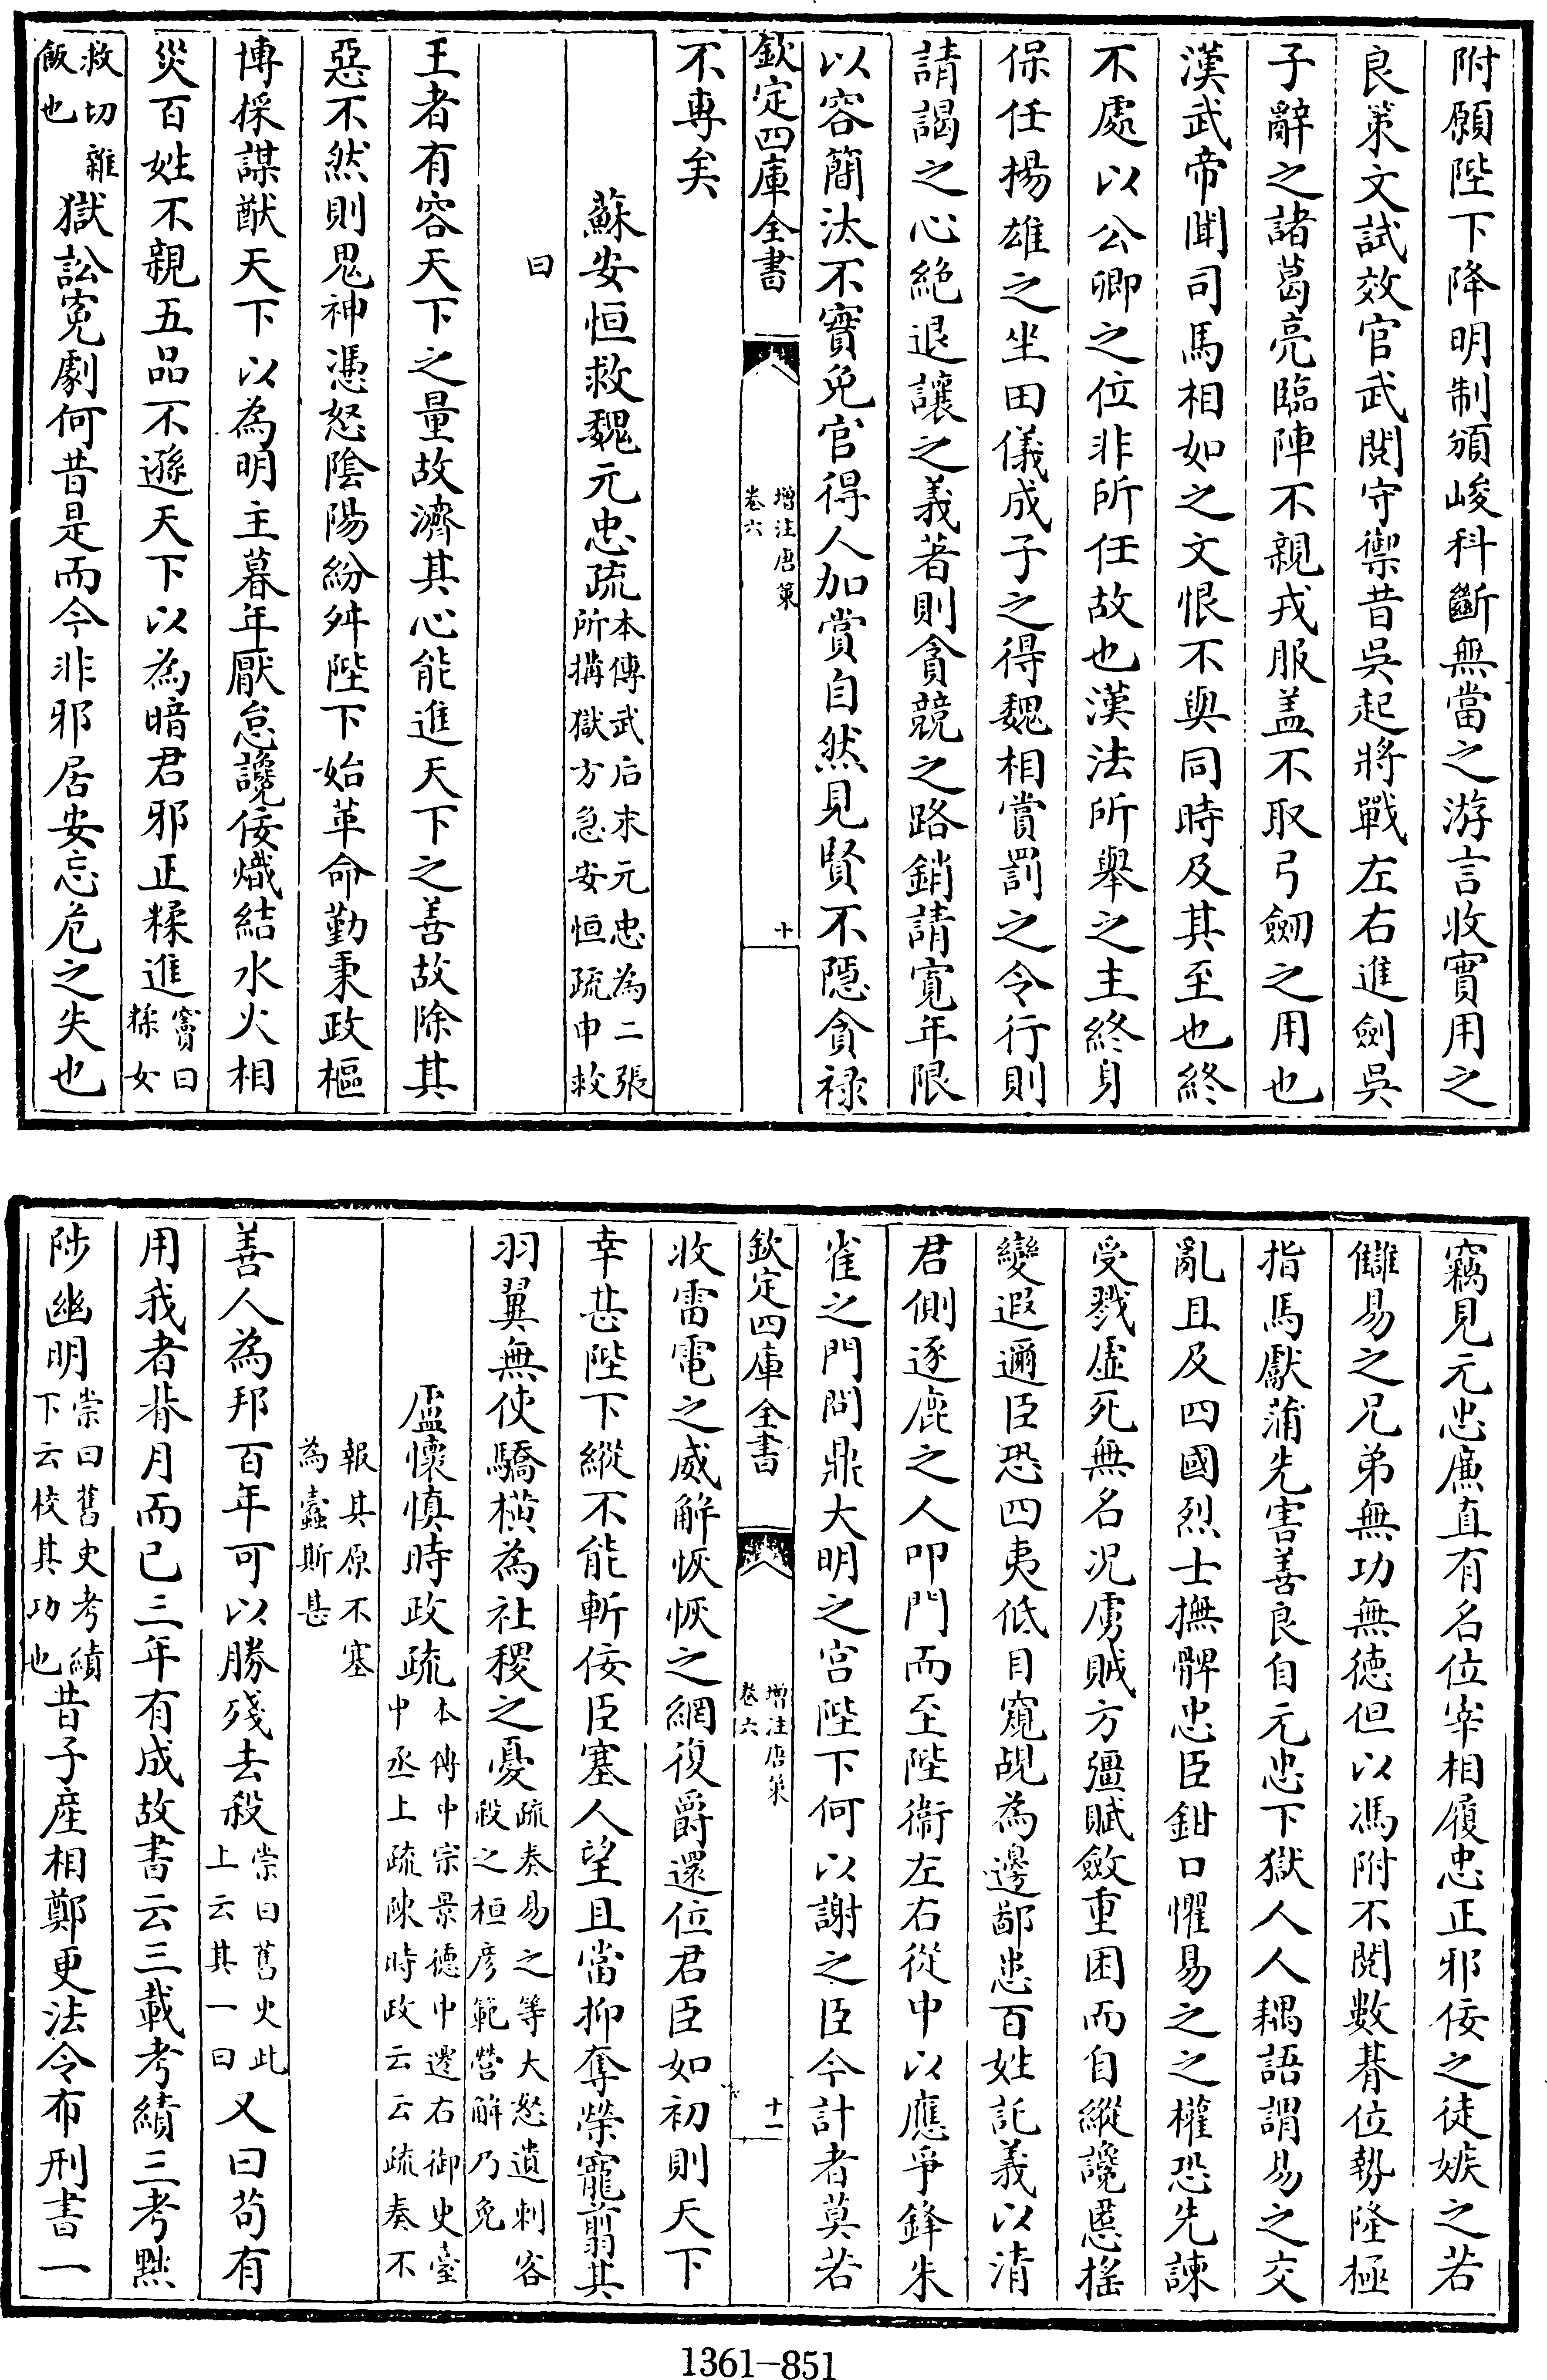 附願陛下降明制頒峻科斷無當之游言收實用之
良策文試效官武閱守禦昔吳起將戰左右進劍吳
子辭之諸葛亮臨陣不親戎服盖不取弓劒之用也
漢武帝聞司馬相如之文恨不與同時及其至也終
不處以公卿之位非所任故也漢法所舉之主終身
保任楊雄之坐田儀成子之得魏相賞罰之令行則
請謁之心絶退讓之義著則貪競之路銷請寛年限
以容簡汰不實免官得人加賞自然見賢不隱貪祿
欽定四庫全書
增注唐策
卷六
十
不專矣
蘇安恒救魏元忠疏
本傳武后末元忠為二張
所搆獄方急安恒疏申救
曰
王者有容天下之量故濟其心能進天下之善故除其
惡不然則鬼神憑怒隂陽紛舛陛下始革命勤秉政樞
博採謀猷天下以為明主暮年厭怠讒佞熾結水火相
災百姓不親五品不遜天下以為暗君邪正糅進
竇曰
糅女
救切雜
飯也
獄訟寃劇何昔是而今非邪居安忘危之失也
竊見元忠廉直有名位宰相履忠正邪佞之徒嫉之若
讎易之兄弟無功無徳但以馮附不閱數朞位勢隆極
指馬獻蒲先害善良自元忠下獄人人耦語謂易之交
亂且及四國烈士撫髀忠臣鉗口懼易之之權恐先諫
受戮虚死無名况虜賊方彊賦斂重困而自縱讒慝搖
變遐邇臣恐四夷低目窺覘為邊鄙患百姓託義以清
君側逐鹿之人叩門而至陛衛左右從中以應爭鋒朱
雀之門問鼎大明之宫陛下何以謝之臣今計者莫若
欽定四庫全書
增注唐策
卷六
十一
收雷電之威解恢恢之網復爵還位君臣如初則天下
幸甚陛下縱不能斬佞臣塞人望且當抑奪榮寵翦其
羽翼無使驕橫為社稷之憂
疏奏易之等大怒遣刺客
殺之桓彦範營解乃免
盧懷慎時政疏
本傳中宗景徳中遷右御史臺
中丞上疏陳時政云云疏奏不
報其原不塞
為蠹斯甚
善人為邦百年可以勝殘去殺
崇曰舊史此
上云其一曰
又曰茍有
用我者朞月而已三年有成故書云三載考績三考黜
陟幽明
崇曰舊史考績
下云校其功也
昔子産相鄭更法令布刑書一
1361-851